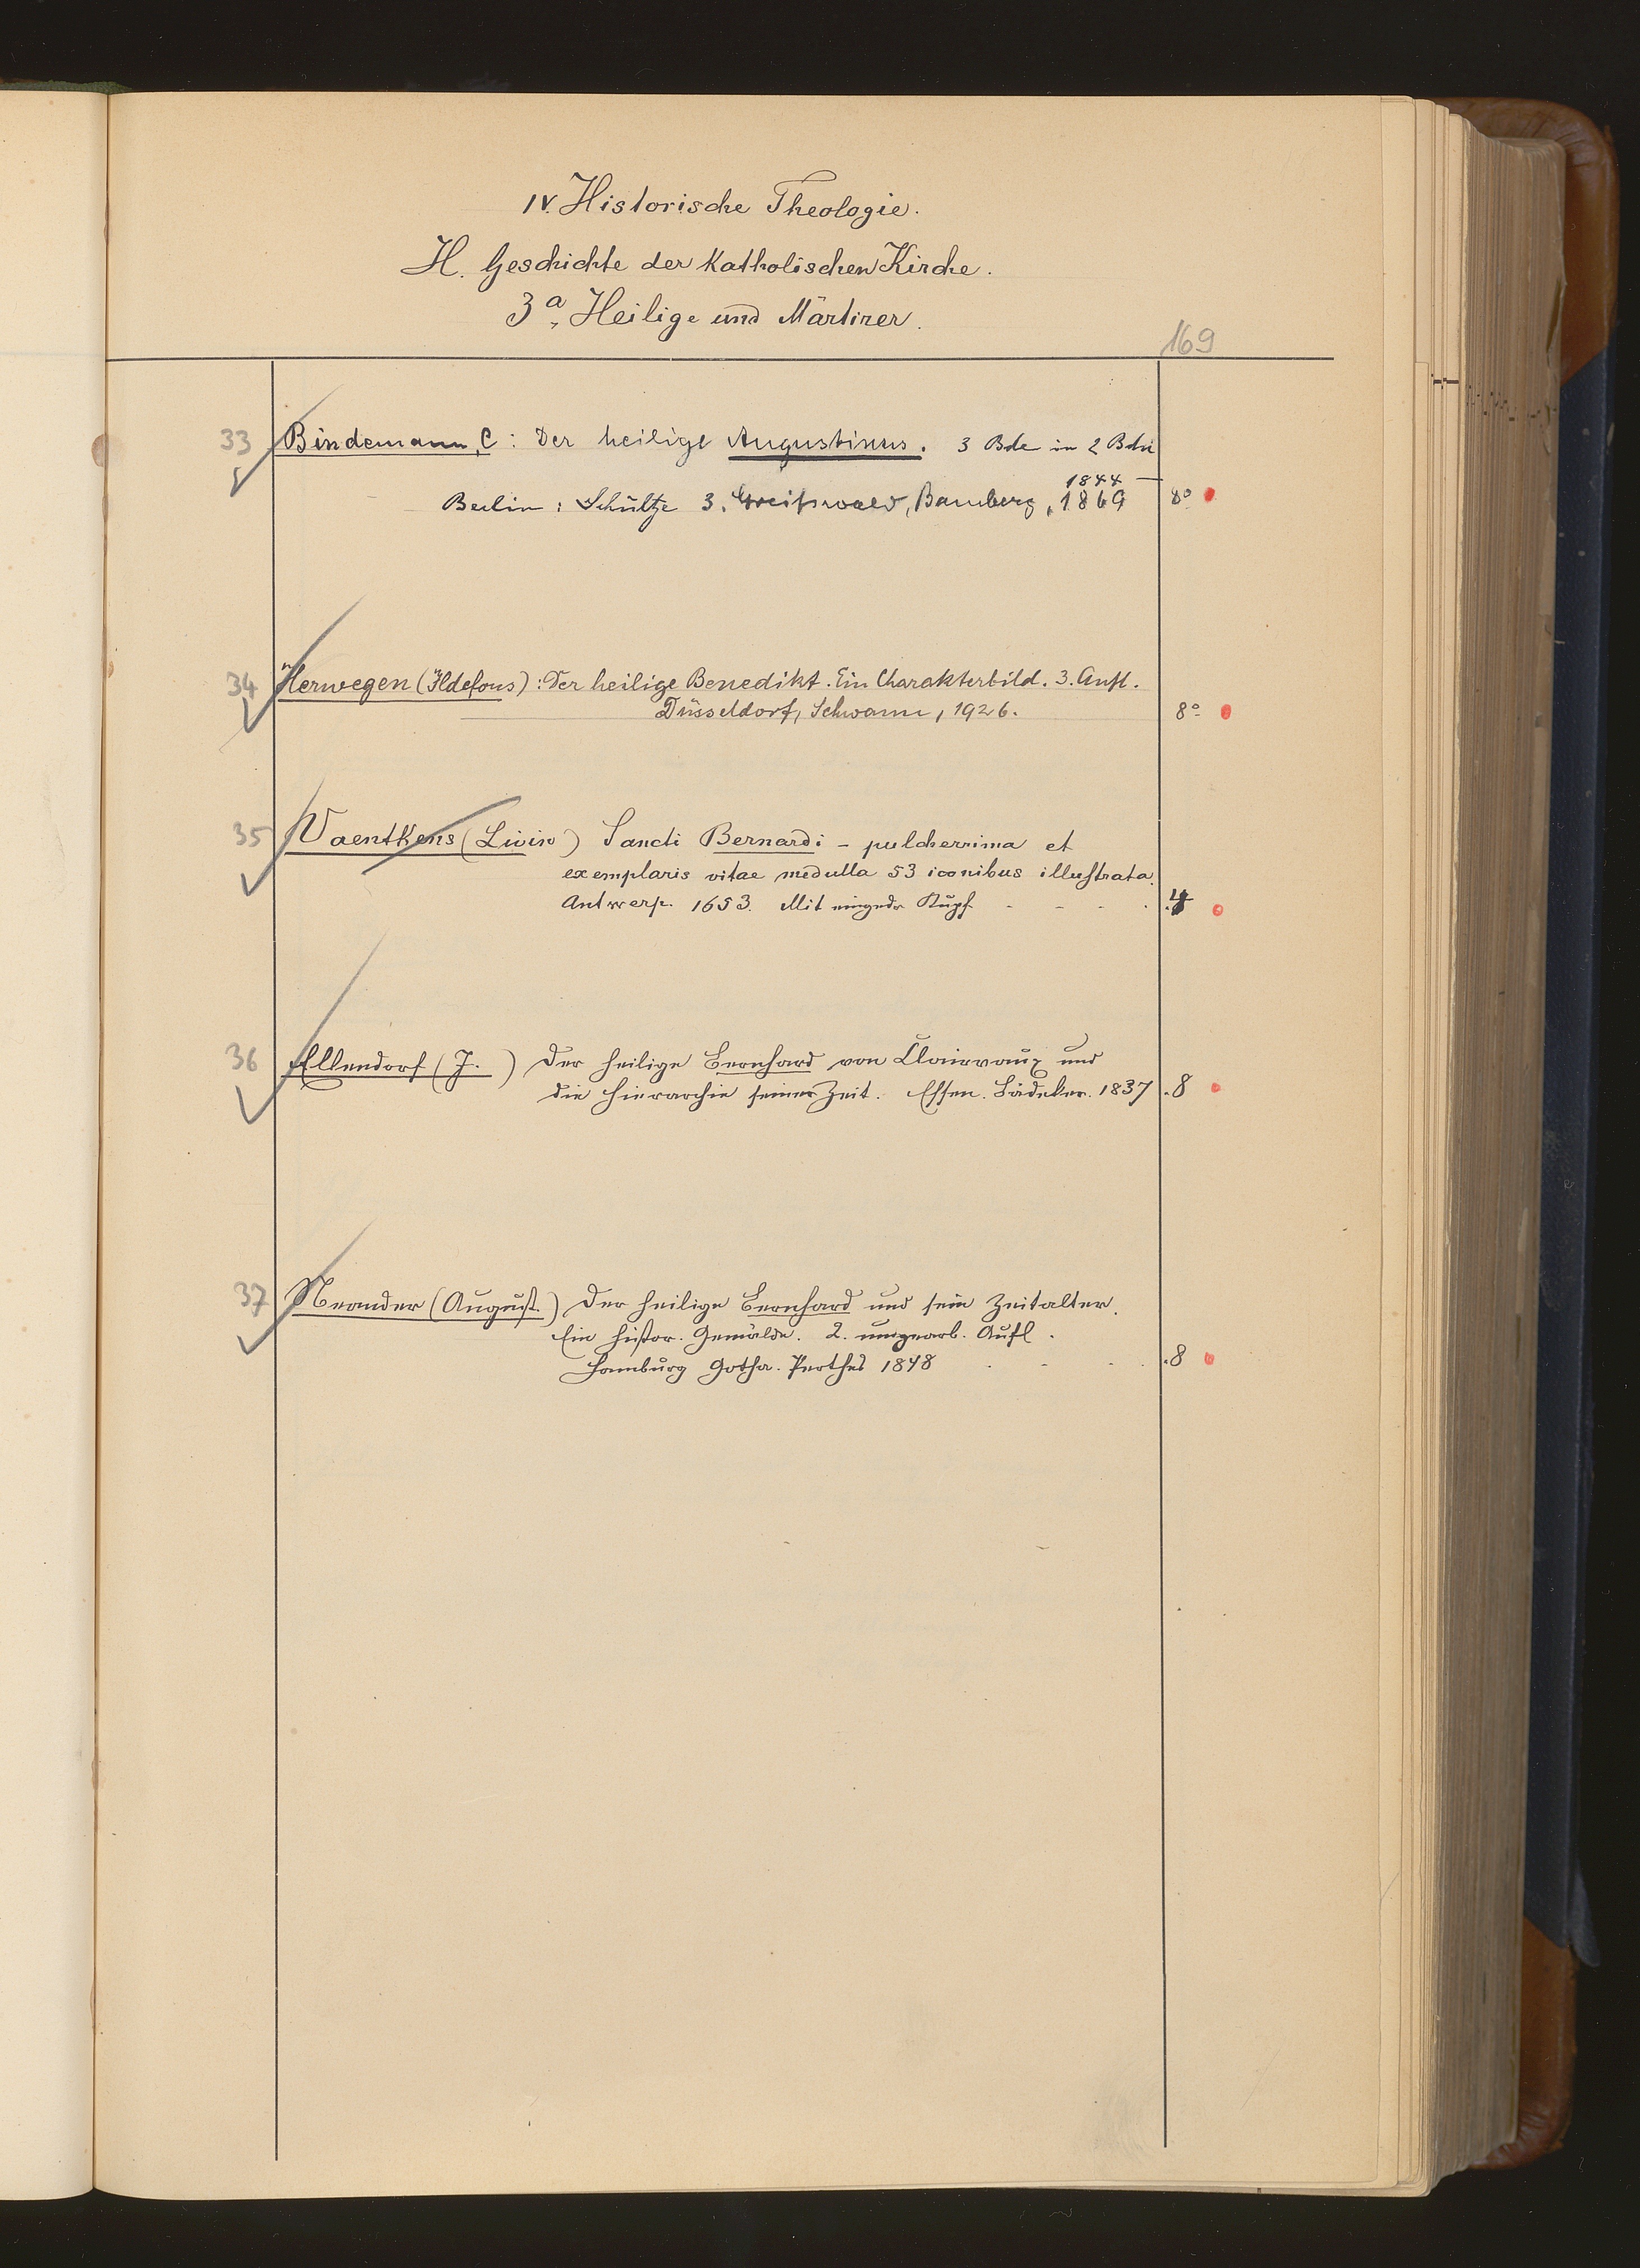 IV. Historische Theologie.
H. Geschichte der Katholischen Kirche.
3a, Heilige und Märtirer.
169
33 Bindemann, C: Der heilige Augustinus. 3 Bde in 2 Bdn
1844 —
Berlin: Schultze 3. Greifswald, Bamberg, 1869 8°
34 Herwegen (Ildefons): Der heilige Benedikt. Ein Charakterbild. 3. Aufl.
Düsseldorf, Schwann, 1926. 8°
35 Vaentkens (Livin) Sancti Bernardi - pulcherrima et
exemplaris vitae medulla 53 iconibus illustrata.
Antwerp. 1653. Mit eingedr Kupf. - - - . 4
36 Ellendorf (J.) Der heilige Bernhard von Clairvaux und
die Hierarchie seiner Zeit. Essen. Bädeker. 1837 .8
37 Neander (August.) Der heilige Bernhard und sein Zeitalter.
Ein histor. Gemälde. 2. umgearb. Aufl.
Hamburg Gotha. Perthes 1848 .8